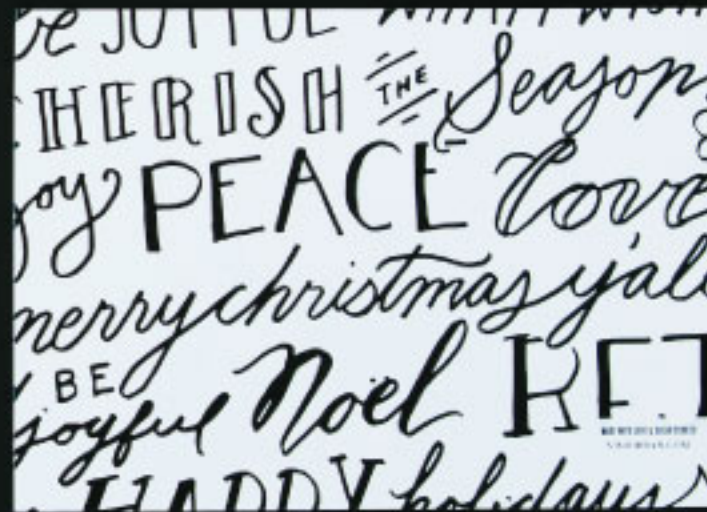 be JOYFUL WHAT I WISH
CHERISH THE Season
joy PEACE love
merry christmas y'all
BE
joyful Noel RET
HAPPY holidays